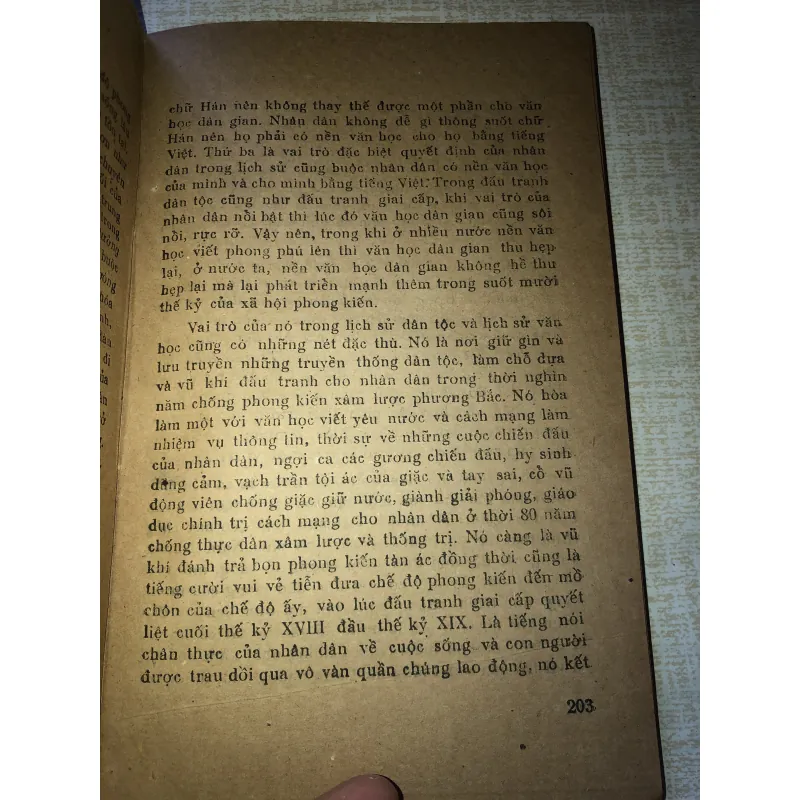 chữ Hán nên không thay thế được một phần cho văn
học dân gian. Nhân dân không dễ gì thông suốt chữ
Hán nên họ phải có nền văn học cho họ bằng tiếng
Việt. Thứ ba là vai trò đặc biệt quyết định của nhân
dân trong lịch sử cũng buộc nhân dân có nền văn học
của mình và cho mình bằng tiếng Việt. Trong đấu tranh
dân tộc cũng như đấu tranh giai cấp, khi vai trò của
nhân dân nổi bật thì lúc đó văn học dân gian cũng sôi
nổi, rực rỡ. Vậy nên, trong khi ở nhiều nước nền văn
học viết phong phú lên thì văn học dân gian thu hẹp
lại, ở nước ta, nền văn học dân gian không hề thu
hẹp lại mà lại phát triển mạnh thêm trong suốt mười
thế kỷ của xã hội phong kiến.
Vai trò của nó trong lịch sử dân tộc và lịch sử văn
học cũng có những nét đặc thù. Nó là nơi giữ gìn và
lưu truyền những truyền thống dân tộc, làm chỗ dựa
và vũ khí đấu tranh cho nhân dân trong thời nghìn
năm chống phong kiến xâm lược phương Bắc. Nó hòa
làm một với văn học viết yêu nước và cách mạng làm
nhiệm vụ thông tin, thời sự về những cuộc chiến đấu
của nhân dân, ngợi ca các gương chiến đấu, hy sinh
dũng cảm, vạch trần tội ác của giặc và tay sai, cổ vũ
động viên chống giặc giữ nước, giành giải phóng, giáo
dục chính trị cách mạng cho nhân dân ở thời 80 năm
chống thực dân xâm lược và thống trị. Nó càng là vũ
khí đánh trả bọn phong kiến tàn ác đồng thời cũng là
tiếng cười vui vẻ tiễn đưa chế độ phong kiến đến mồ
chôn của chế độ ấy, vào lúc đấu tranh giai cấp quyết
liệt cuối thế kỷ XVIII đầu thế kỷ XIX. Là tiếng nói
chân thực của nhân dân về cuộc sống và con người
được trau dồi qua vô vàn quần chúng lao động, nó kết
203